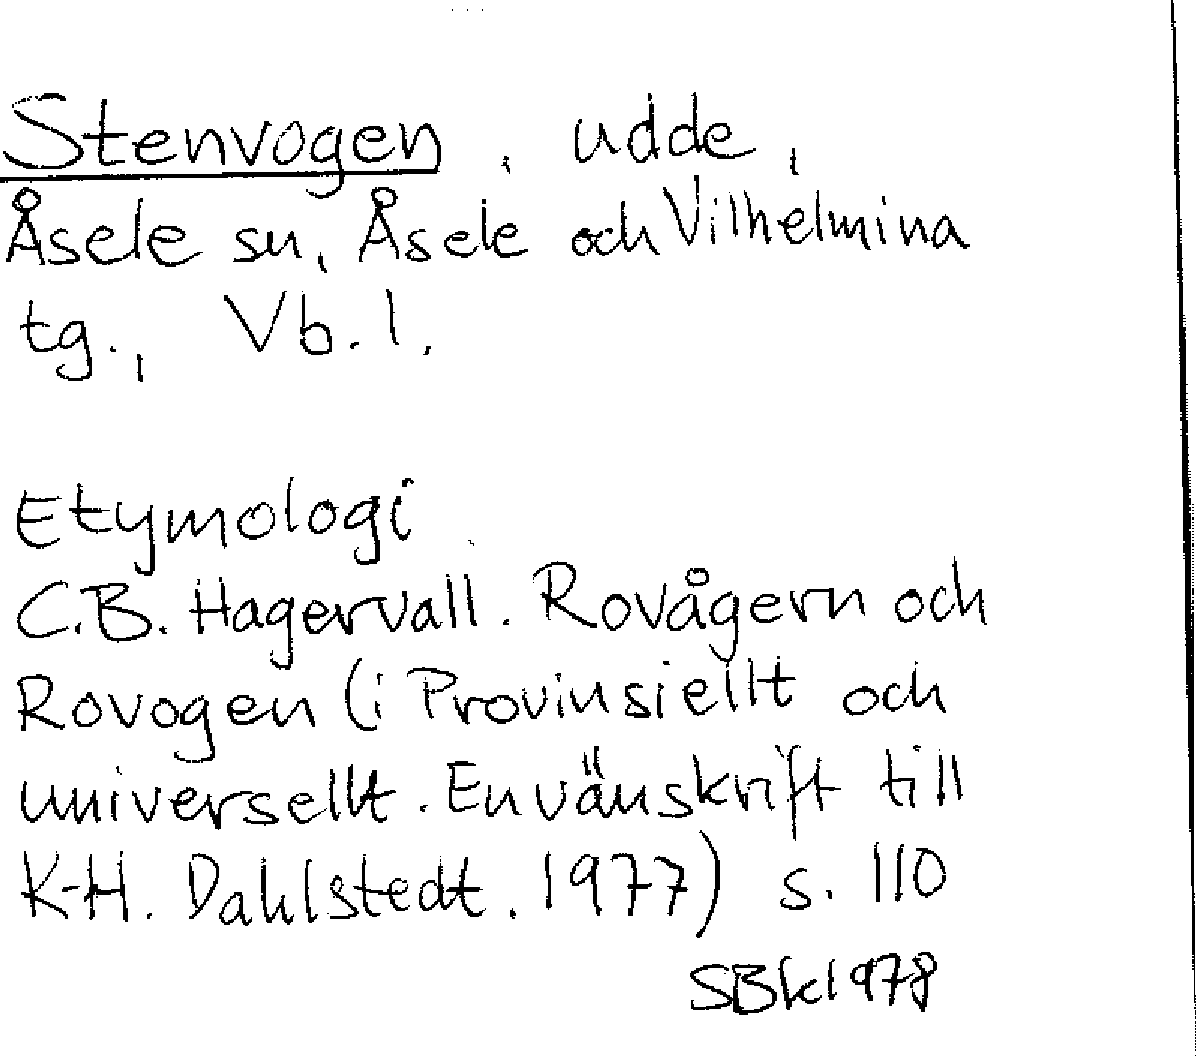 Stenvogen, udde,
Åsele sn, Åsele och Vilhelmina
tg., Vb. l.
Etymologi
C.B. Hagervall. Rovågern och
Rovogen (i Provinsiellt och
universellt. En vänskrift till
K-H. Dahlstedt. 1977) s. 110
SBk 1978